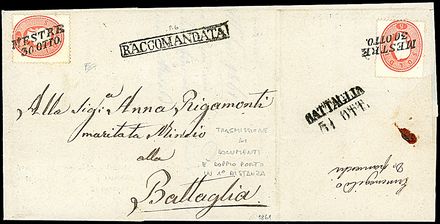 MESTRE
30 OTTO.
RACCOMANDATA
MESTRE
30 OTTO.
BATTAGLIA
31 OTT.
Alla Sig.a Anna Rigamonti
maritata Minio
alla
Battaglia
TRASMISSIONE
DI
DOCUMENTI
DOPPIO PORTO
IN 1a DISTANZA
1861